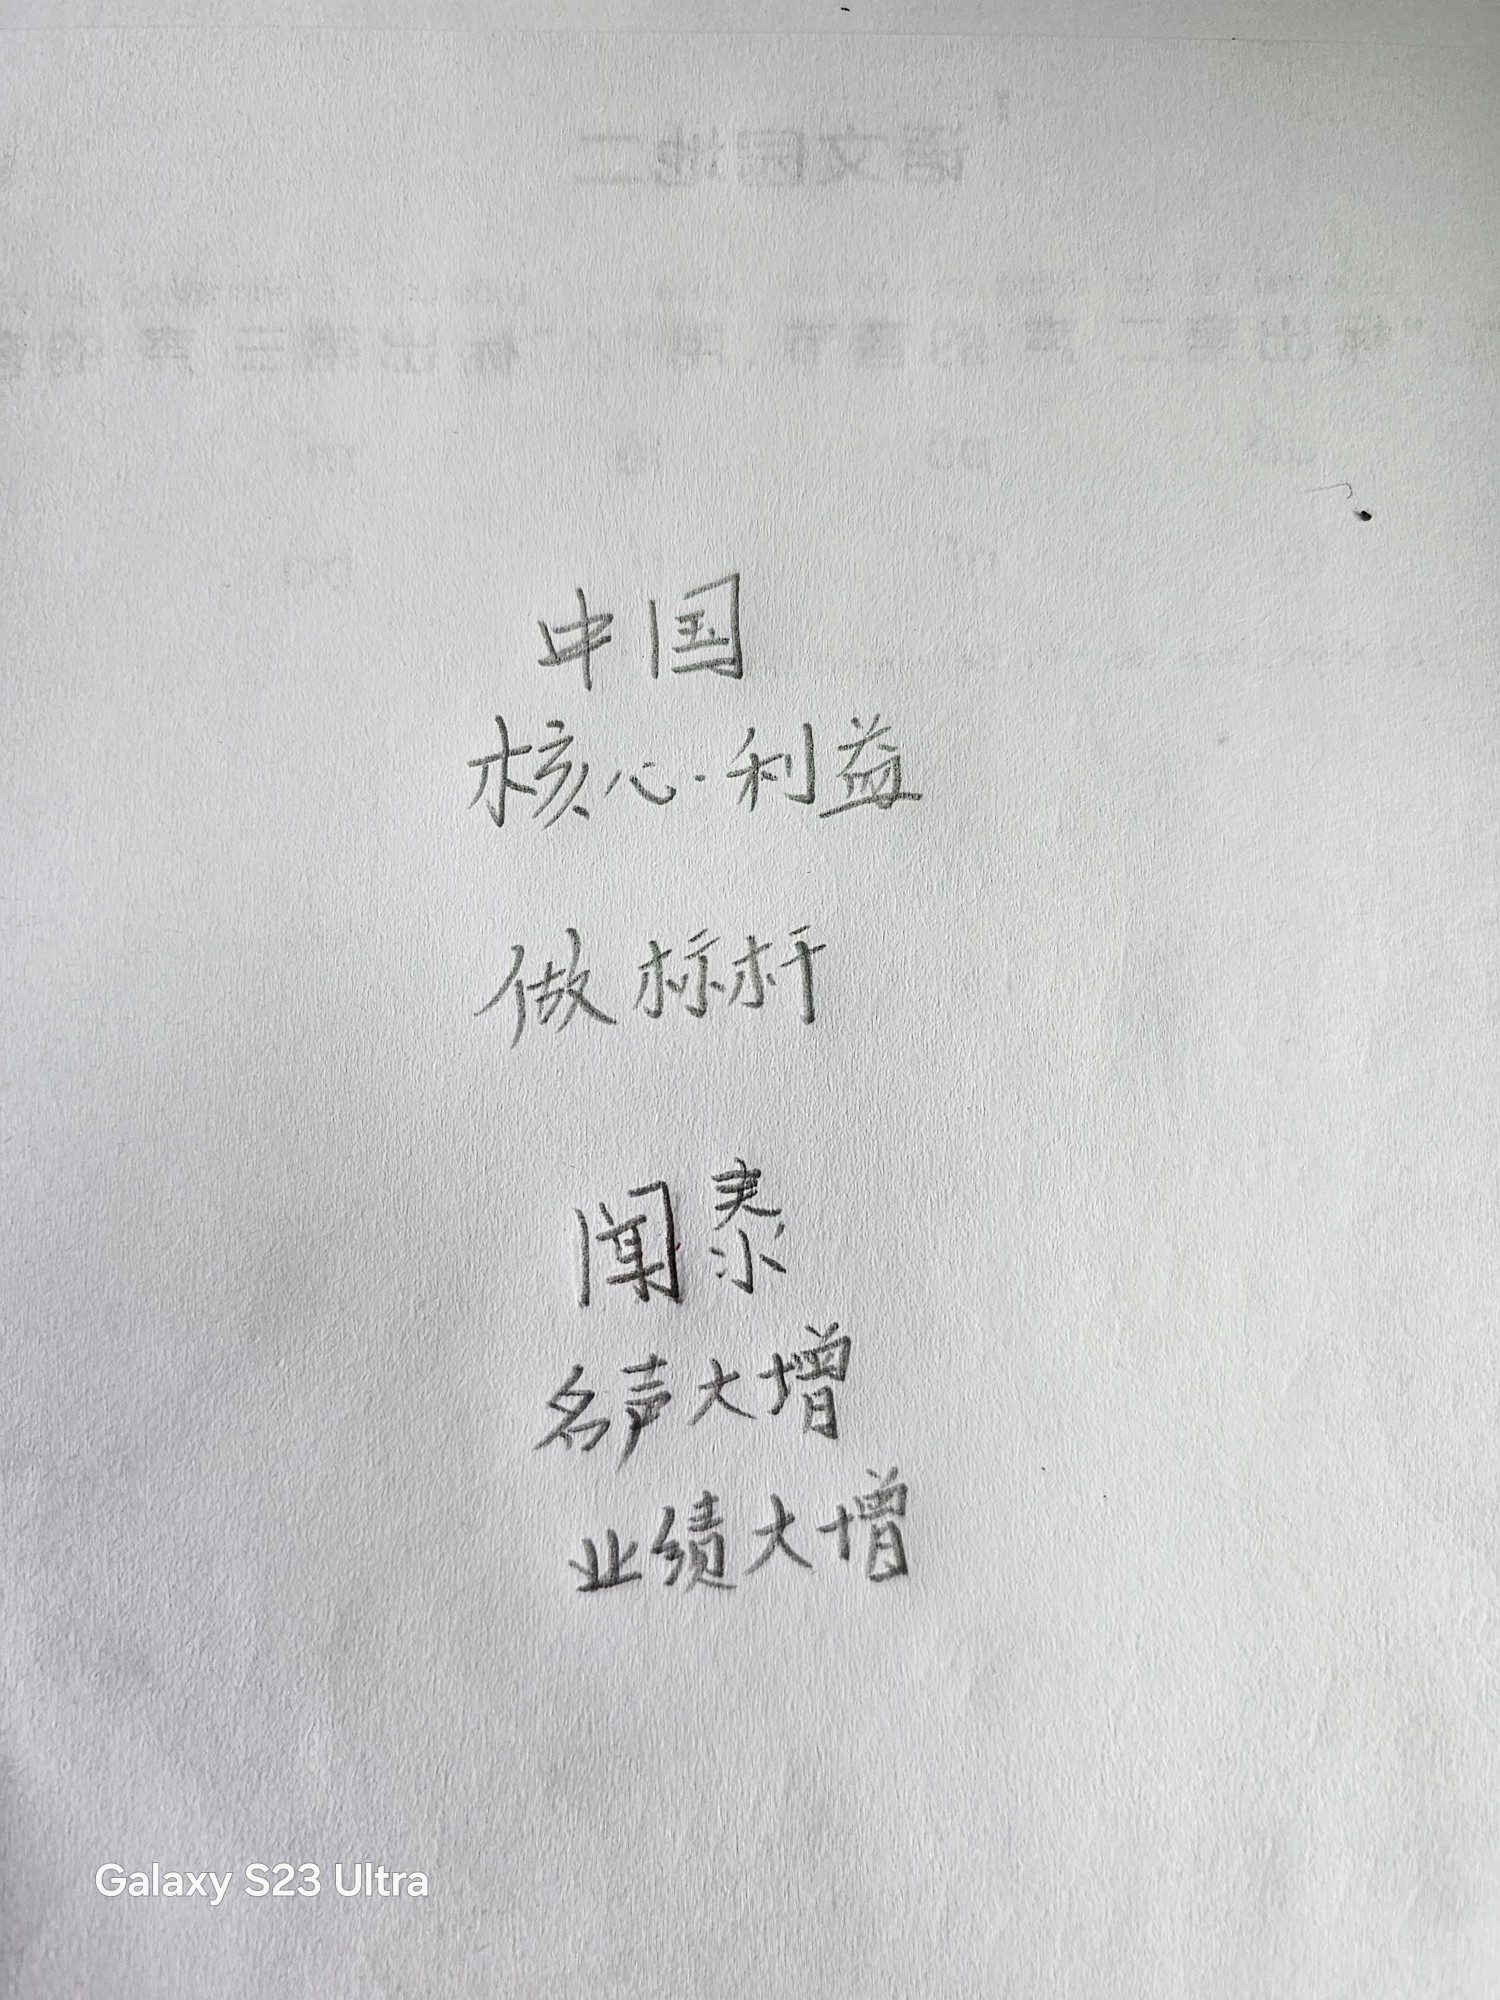 语文园地二
中国
核心·利益
做标杆
闻泰
名声大增
业绩大增
Galaxy S23 Ultra